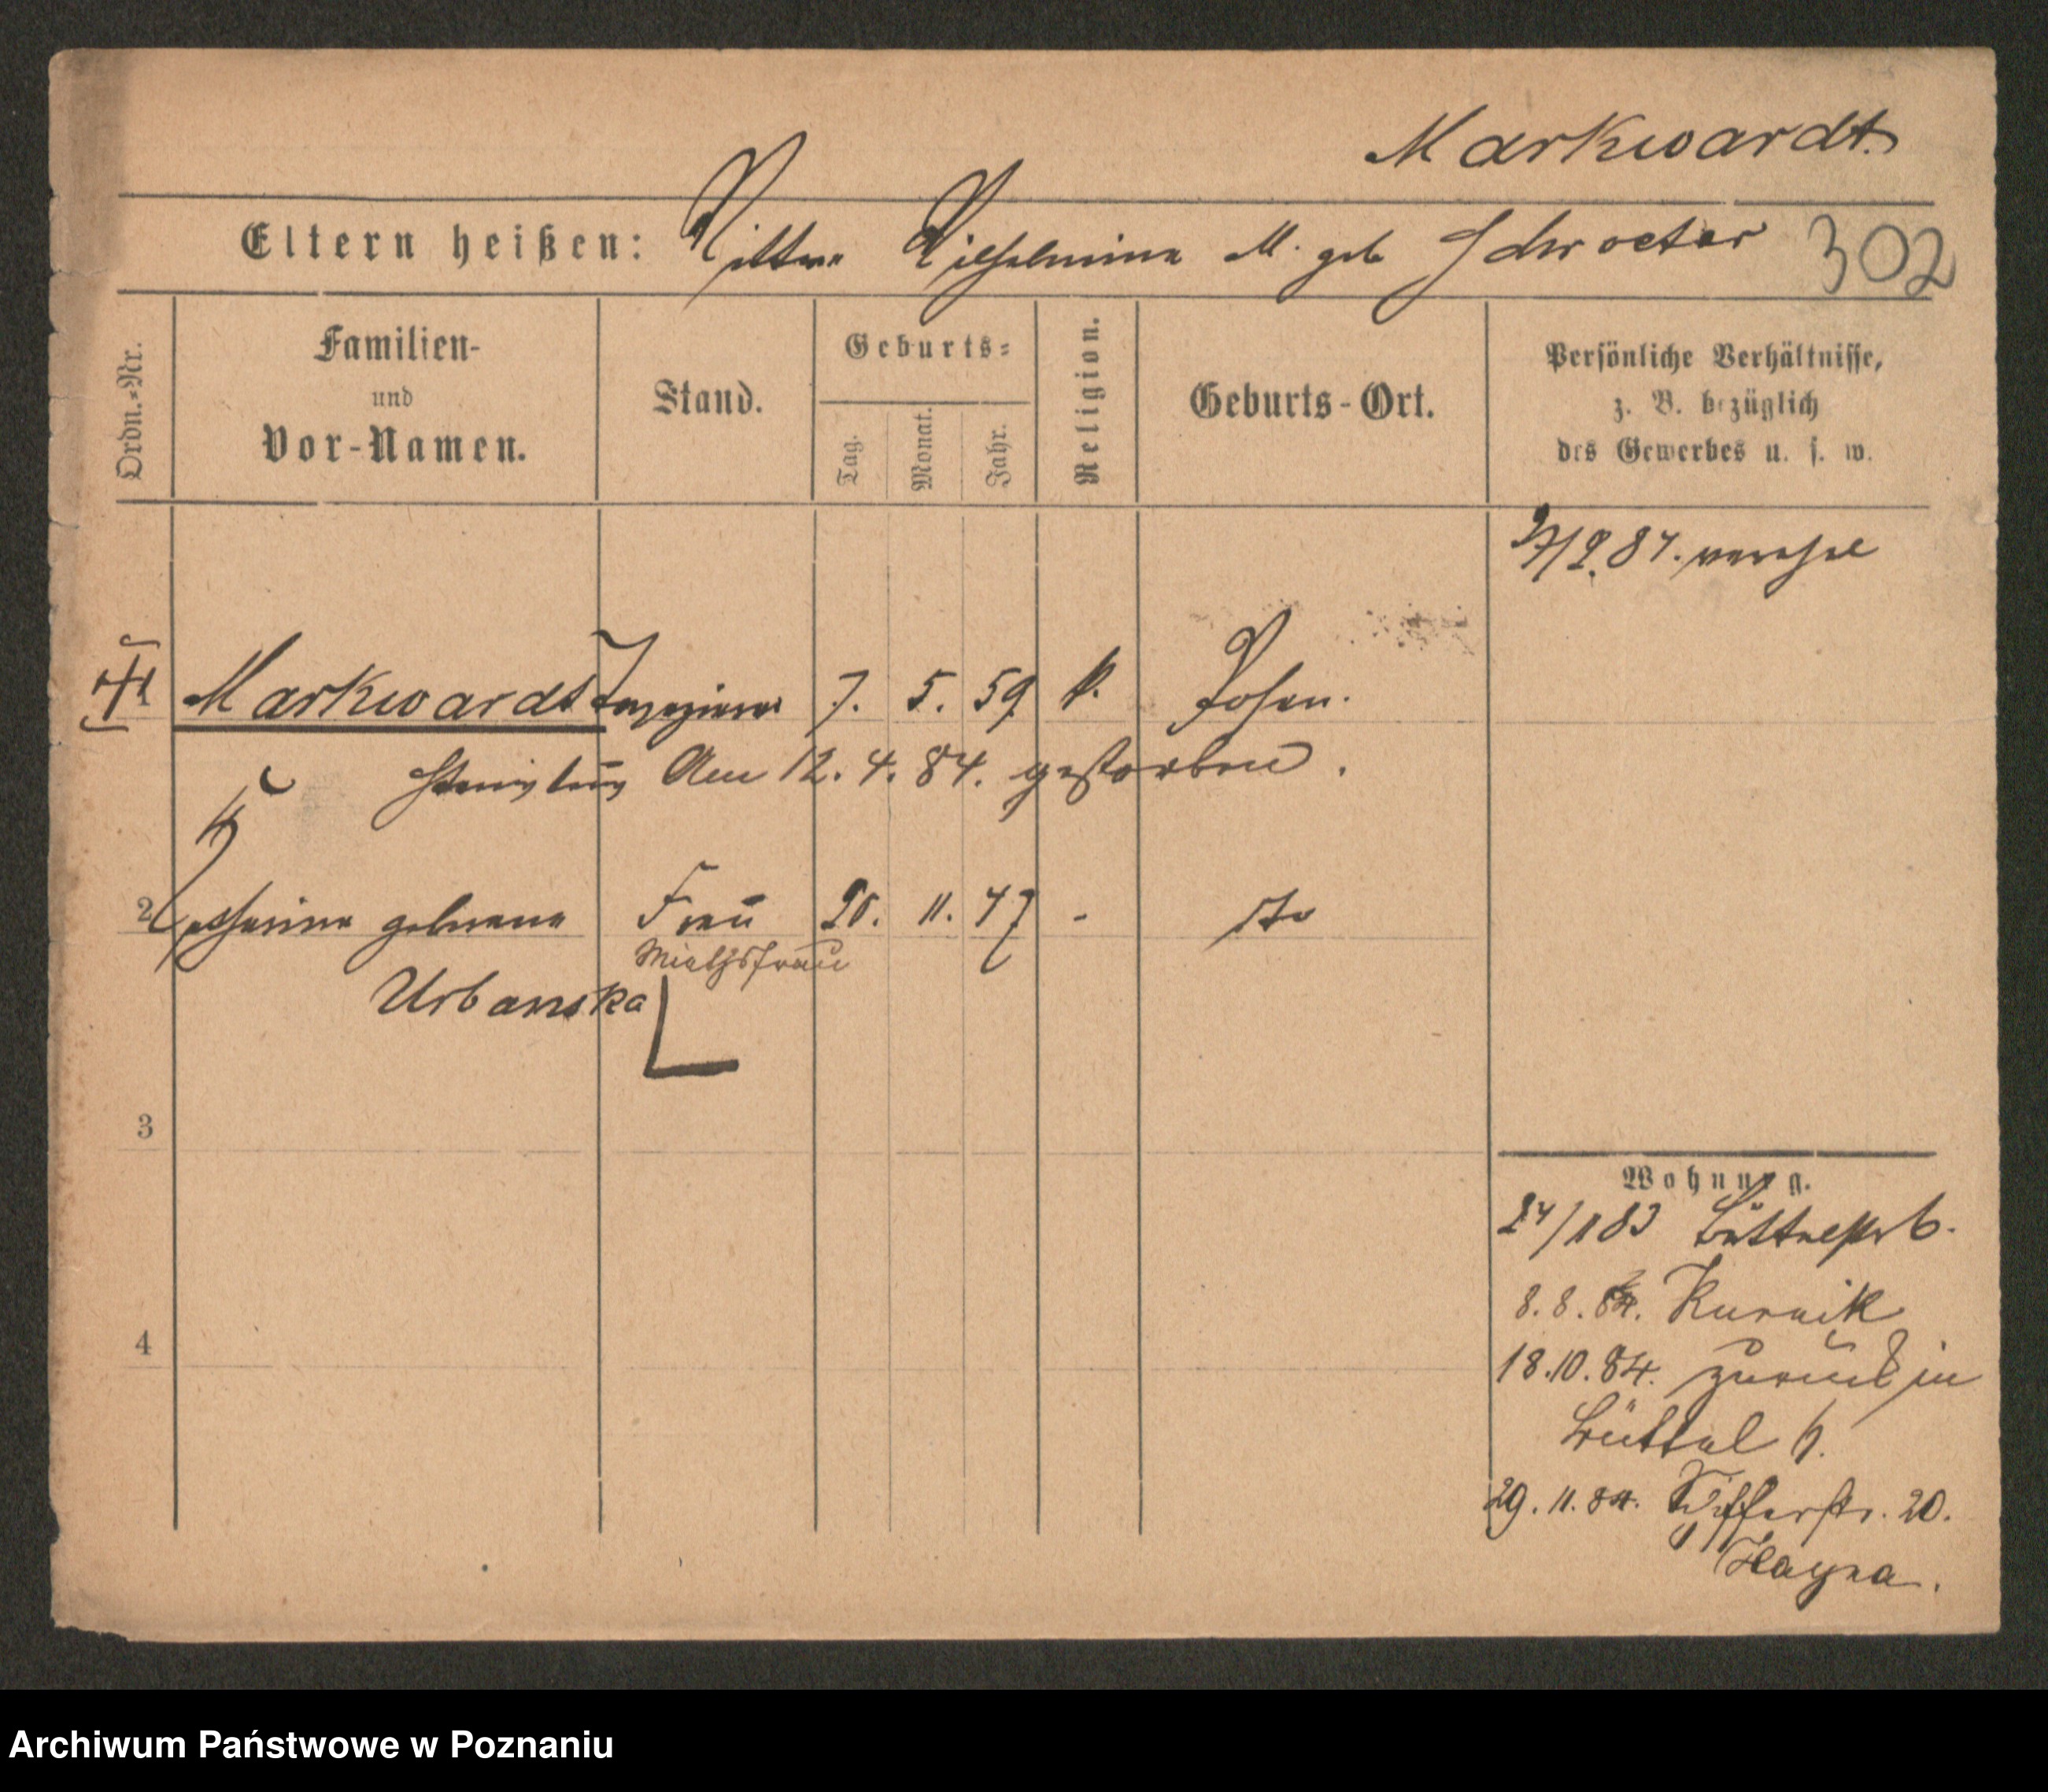 Markwardt.
Eltern heißen: Wittwe Wilhelmine M. geb Schroeter 302
Ordn.=Nr.
Familien-
und
Vor-Namen.
Stand.
Geburts=
Tag.
Monat.
Jahr.
Religion.
Geburts-Ort.
Persönliche Verhältnisse,
z. B. bezüglich
des Gewerbes u. s. w.
1 Markwardt Tapezierer 7. 5. 59 k. Posen.
Stanislaus Am 12. 4. 84. gestorben.
2 Catharina geborene Frau 11. 47 - dto
Miethsfrau
Urbanska
3
Wohnung.
24/1 83 Büttelstr 6.
8. 8. 84. Kurnik
4
18. 10. 84. zurück in
Büttel 6.
29. 11. 84. 20.
Archiwum Państwowe w Poznaniu